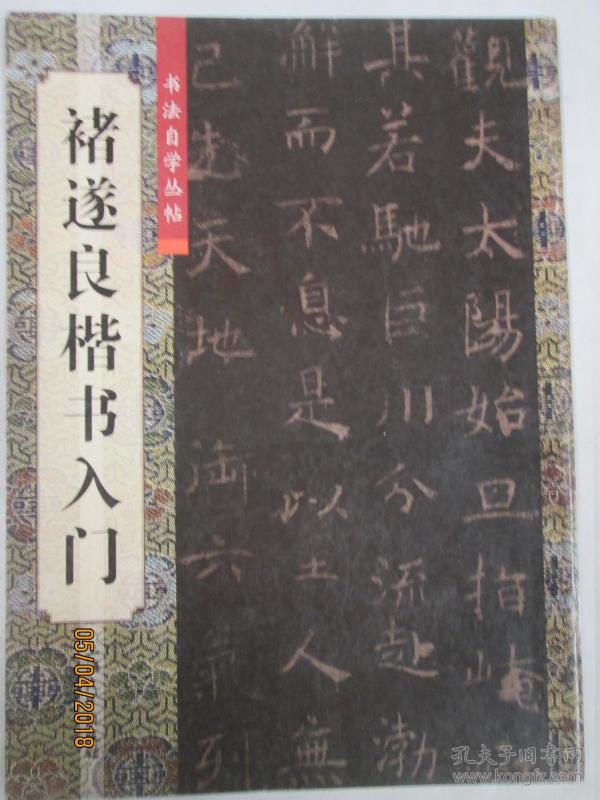 书法自学丛帖
褚遂良楷书入门
觀夫太陽始旦指崦
其若馳巨川分流赴渤
澥而不息是以至人無
己先天地御六氣
05/04/2018
孔夫子旧书网
www.kongfz.com